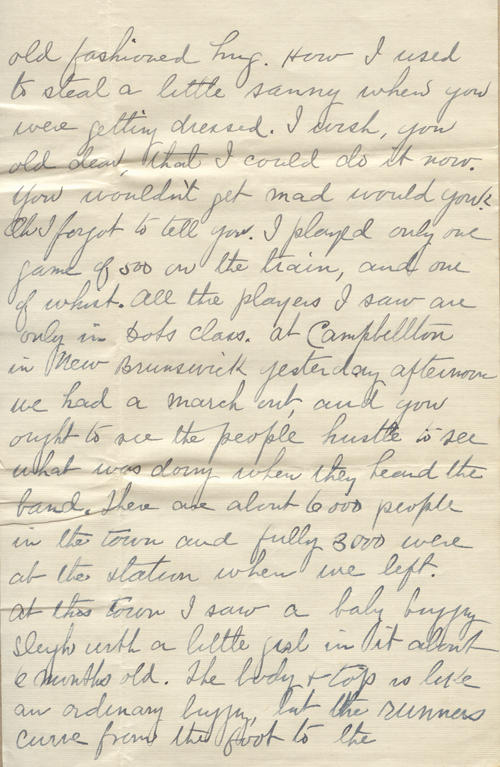 old fashioned hug. How I used
to steal a little sanny when you
were getting dressed. I wish, you
old dear, that I could do it now.
You wouldn't get mad would you?
Oh I forgot to tell you. I played only one
game of 500 on the train, and one
of whist. All the players I saw are
only in Dobs class. At Campbellton
in New Brunswick yesterday afternoon
we had a march out, and you
ought to see the people hustle to see
what was doing when they heard the
band. There are about 6000 people
in the town and fully 3000 were
at the station when we left.
At this town I saw a baby buggy
sleigh with a little girl in it about
6 months old. The body + top is like
an ordinary buggy, but the runners
curve from the foot to the